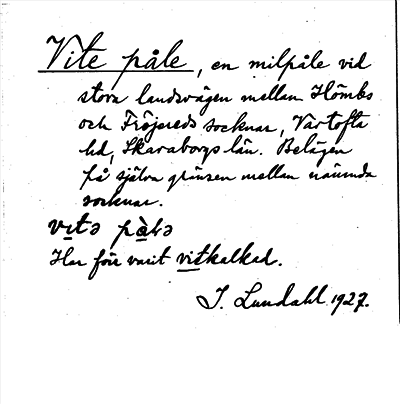 Vite påle, en milpåle vid
stora landsvägen mellan Hömbs
och Fröjereds socknar, Vartofta
hd, Skaraborgs län. Belägen
på själva gränsen mellan nämnda
socknar.
vitə pàlə
Har förr varit vitkalkad.
I. Lundahl 1927.